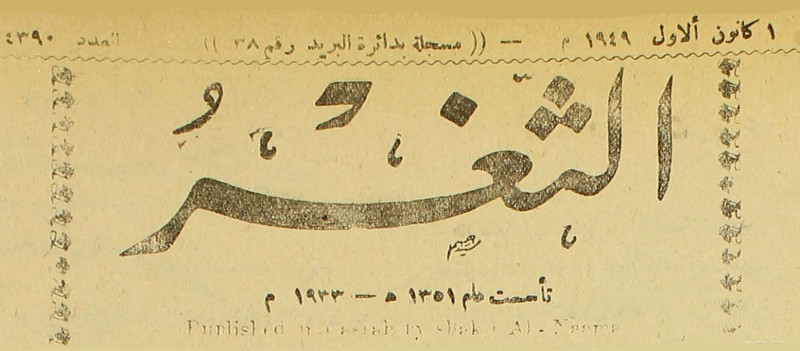 ١ كانون ألاول ١٩٤٩ م — (( مسجلة بدائرة البريد رقم ٣٨ )) العدد ٤٣٩٠
الثَّغْرُ
تأسست عام ١٣٥١ ه — ١٩٣٣ م
Published Al-Naama